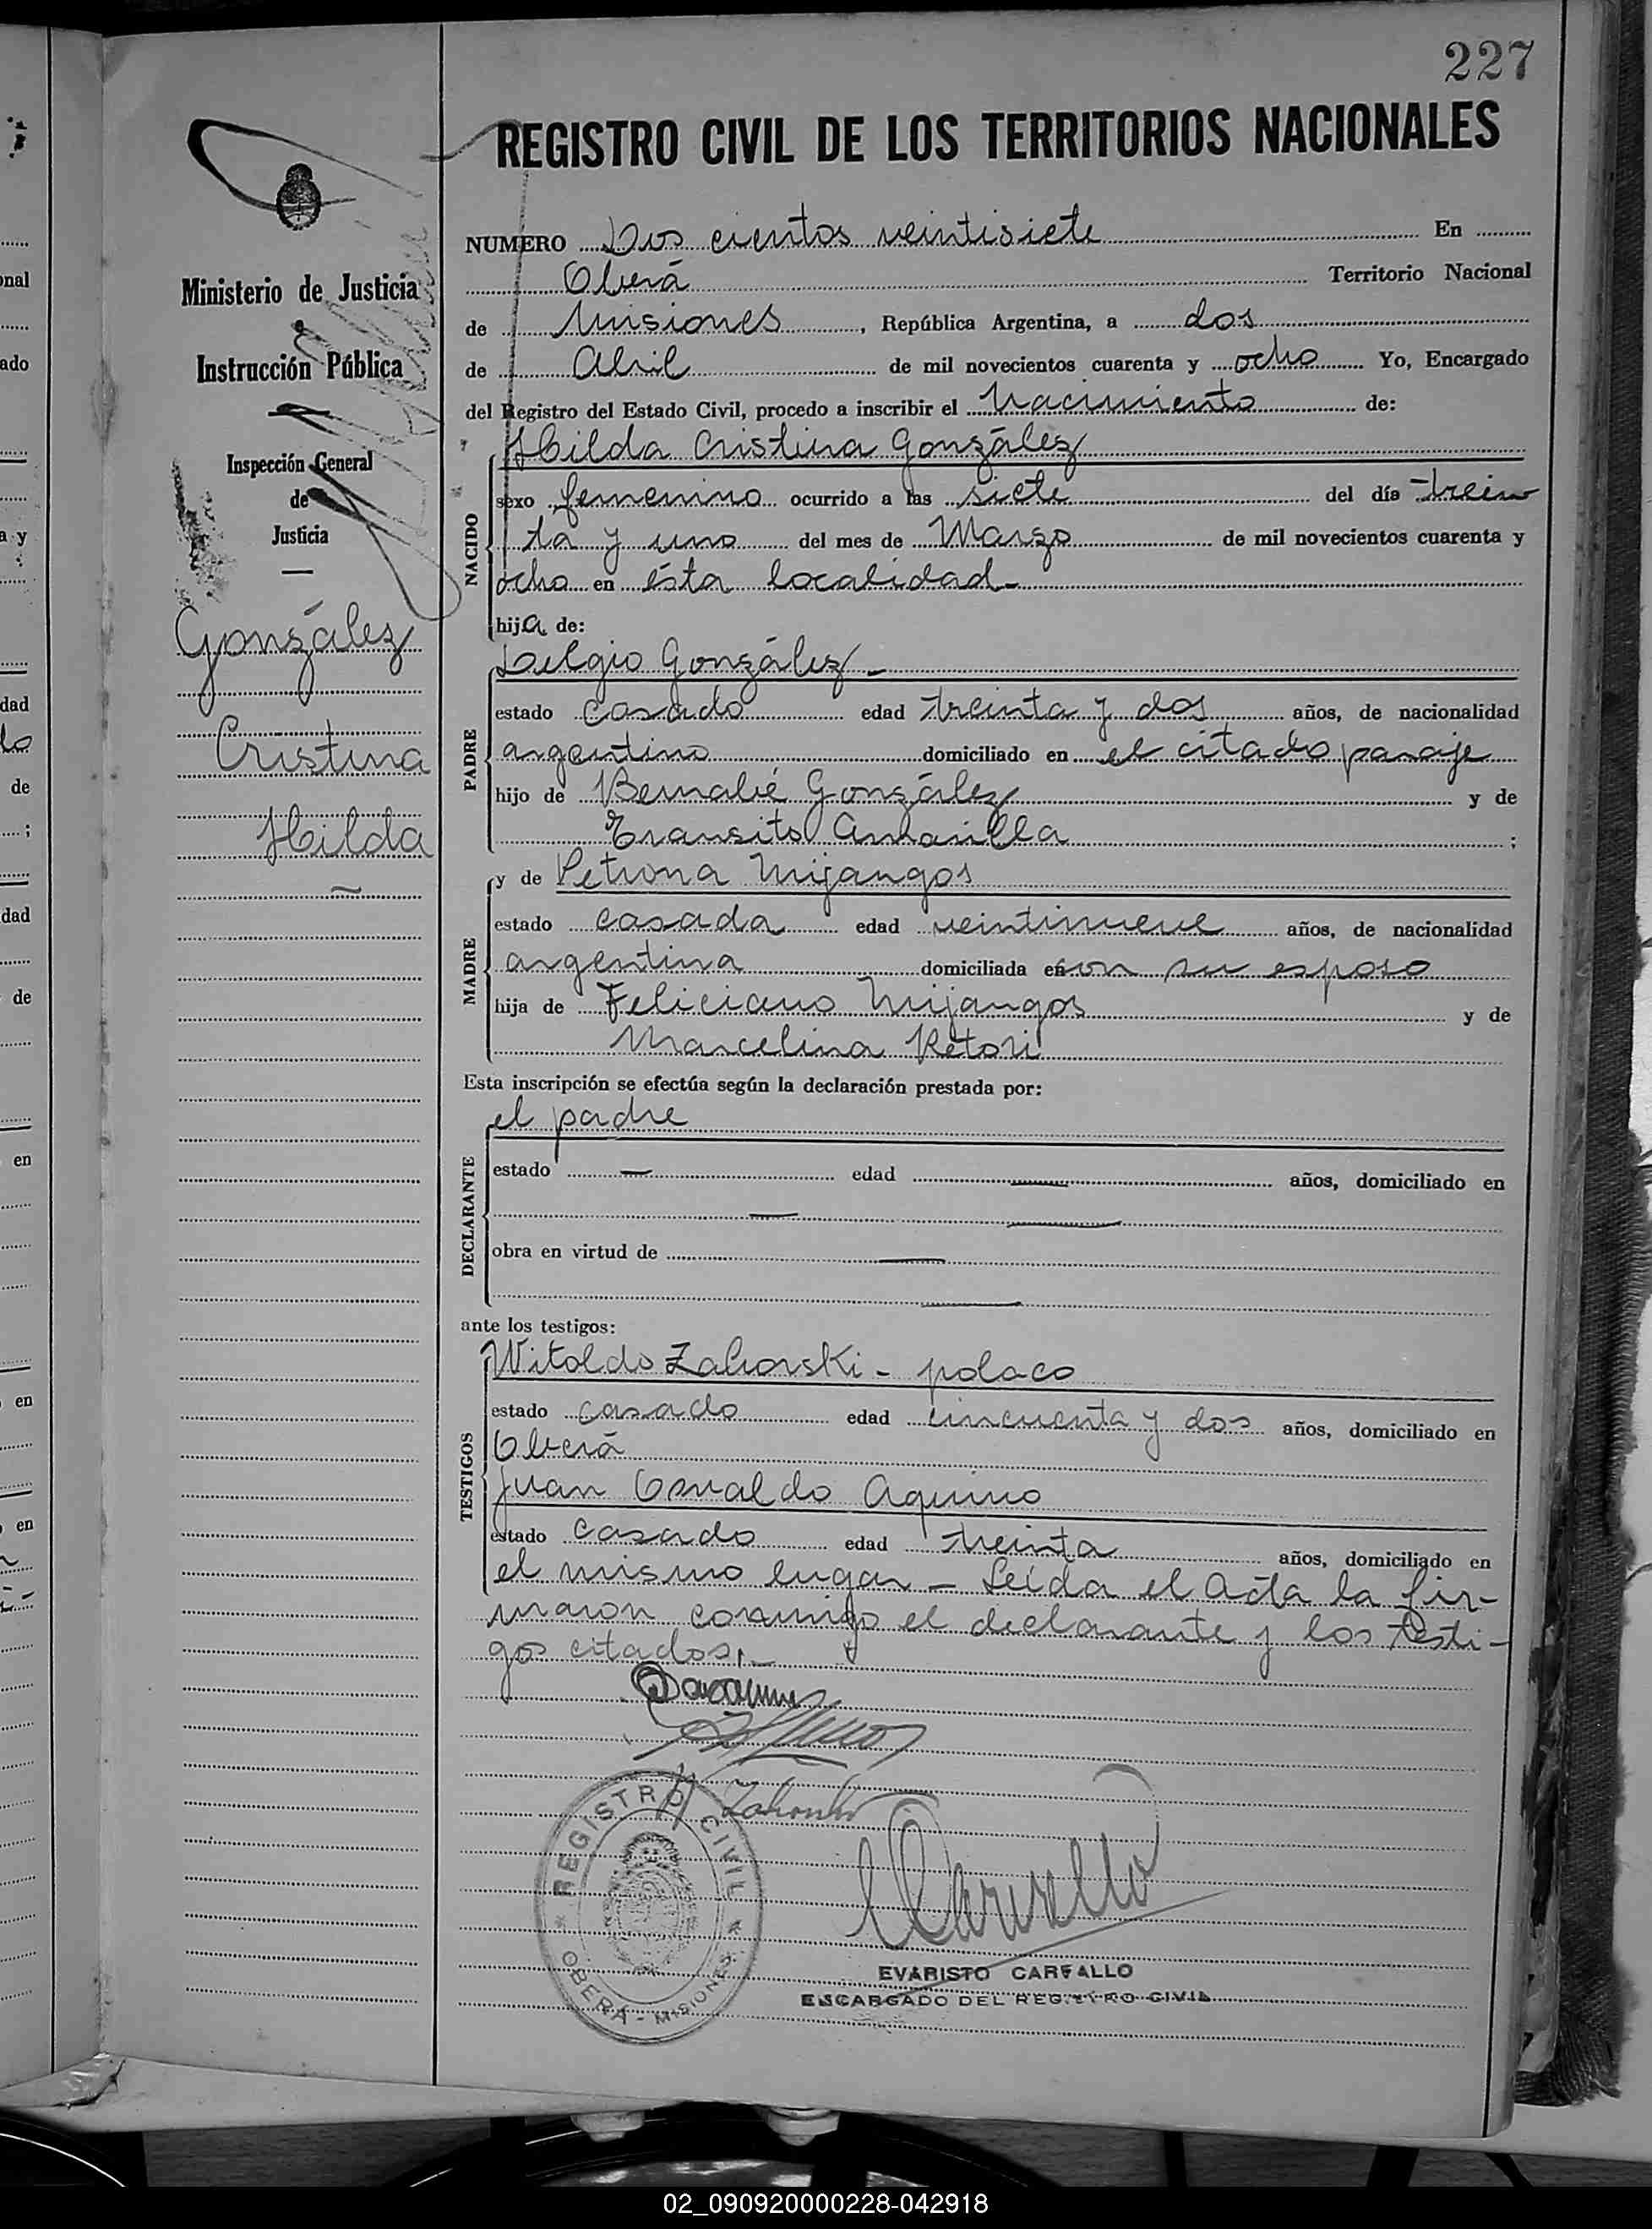 227
REGISTRO CIVIL DE LOS TERRITORIOS NACIONALES
Ministerio de Justicia
e
Instrucción Pública
Inspección General
de
Justicia
González
Cristina
Hilda
NUMERO Dos cientos veintisiete En
Oberá Territorio Nacional
de Misiones, República Argentina, a dos
de Abril de mil novecientos cuarenta y ocho Yo, Encargado
del Registro del Estado Civil, procedo a inscribir el Nacimiento de:
NACIDO
Hilda Cristina González
sexo femenino ocurrido a las siete del día trein
ta y uno del mes de Marzo de mil novecientos cuarenta y
ocho en ésta localidad-
hija de:
PADRE
Delgio González-
estado casado edad treinta y dos años, de nacionalidad
argentino domiciliado en el citado paraje
hijo de Bernabé González y de
Transito Amarilla;
MADRE
y de Petrona Mijangos
estado casada edad veintinueve años, de nacionalidad
argentina domiciliada en con su esposo
hija de Feliciano Mijangos y de
Marcelina Retori
Esta inscripción se efectúa según la declaración prestada por:
DECLARANTE
el padre
estado — edad — años, domiciliado en
obra en virtud de —
ante los testigos:
TESTIGOS
Witoldo Zahorski - polaco
estado casado edad cincuenta y dos años, domiciliado en
Oberá
Juan Osvaldo Aquino
estado casado edad treinta años, domiciliado en
el mismo lugar - Leída el acta la fir-
maron conmigo el declarante y los testi-
gos citados.-
REGISTRO CIVIL
OBERA - MISIONES
EVARISTO CARVALLO
ENCARGADO DEL REGISTRO CIVIL
02_090920000228-042918